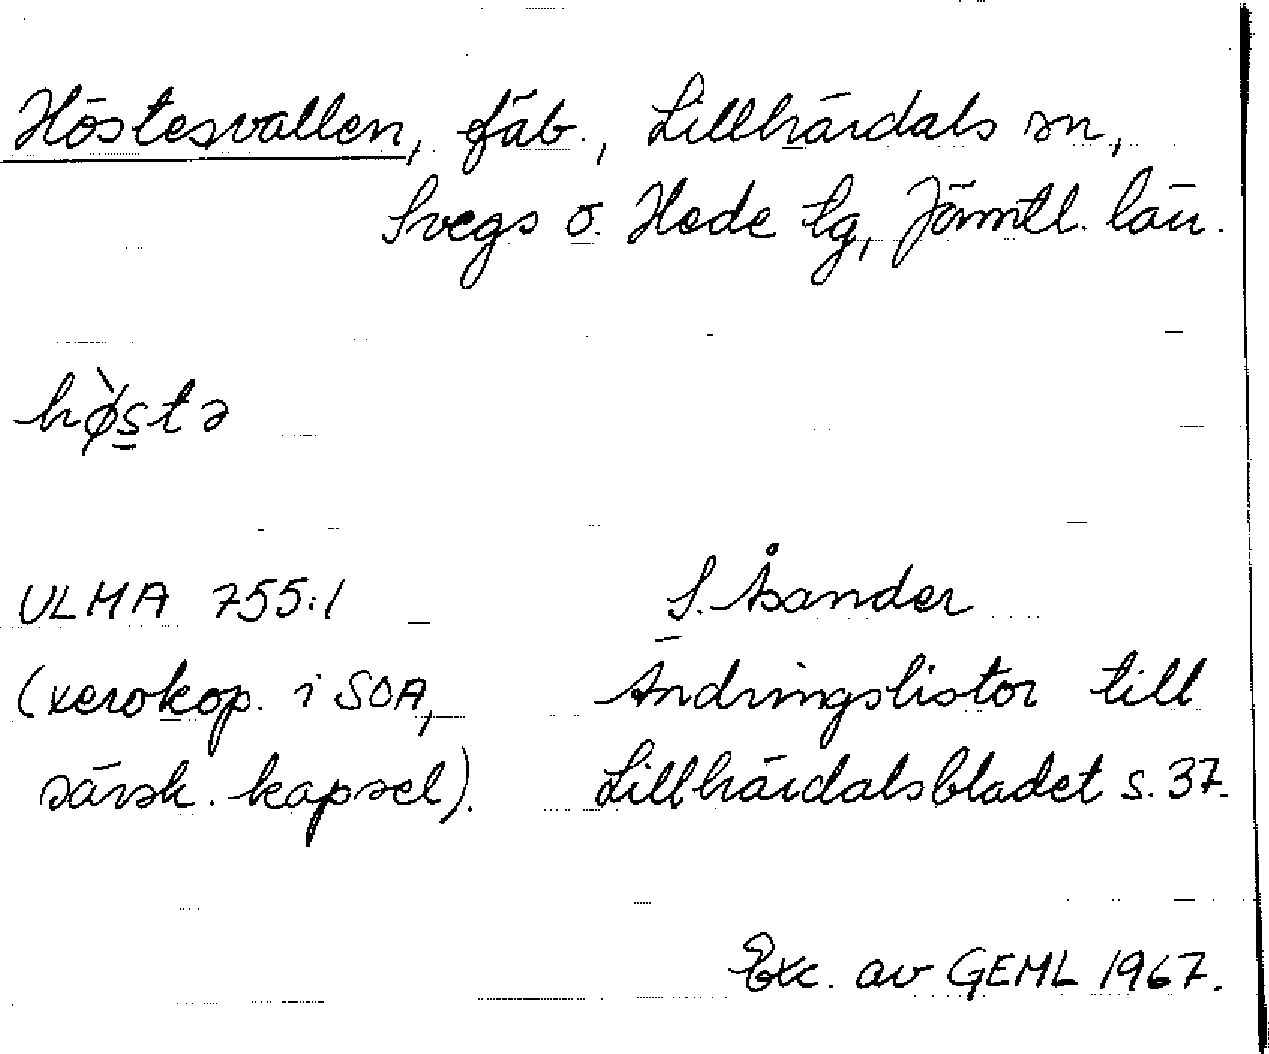 Höstesvallen, fäb., Lillhärdals sn,
Svegs o. Hede tg, Jämtl. län.
hø̀s̲tə
ULMA 755:1
S. Åsander
(xerokop. i SOA,
Ändringslistor till
särsk. kapsel).
Lillhärdalsbladet s. 37.
Exc. av GEML 1967.